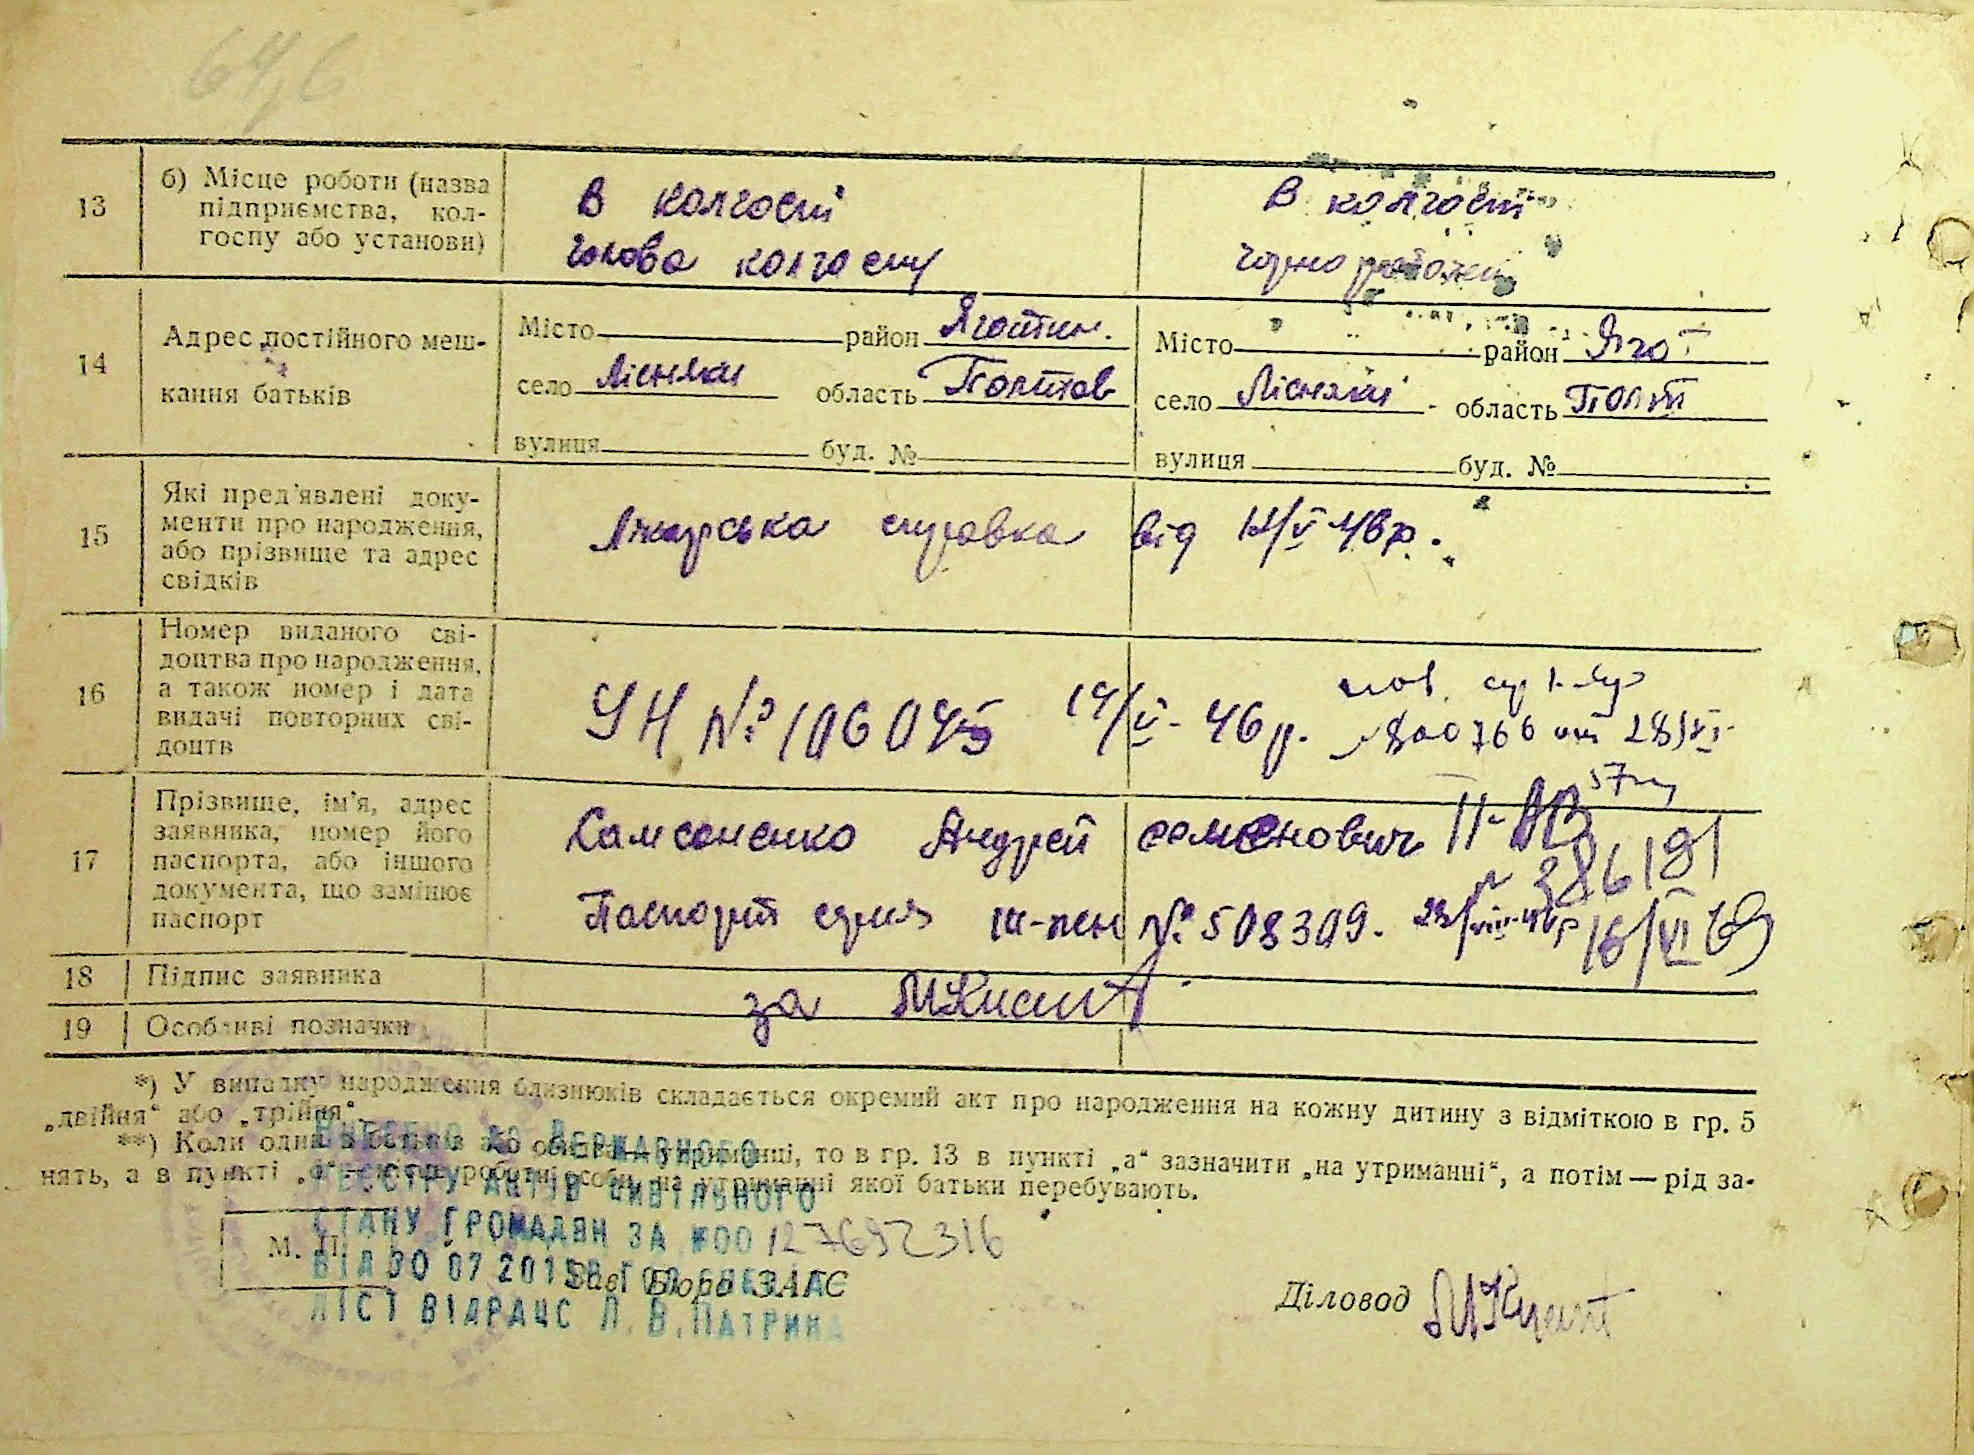 64,6
13
б) Місце роботи (назва
підприємства, кол-
госпу або установи)
в колгоспі
голова колгоспу
в колгоспі
чорноробочей
14
Адрес постійного меш-
кання батьків
Місто район Яготин.
село Лісняки область Полтов
вулиця буд. №
Місто район Ягот
село Лісняки область Полт
вулиця буд. №
15
Які пред'явлені доку-
менти про народження,
або прізвище та адрес
свідків
Лікарська справка від
16
Номер виданого сві-
доцтва про народження,
а також номер і дата
видачі повторних сві-
доцтв
УН № 106045 14/V-46р.
17
Прізвище, ім'я, адрес
заявника, номер його
паспорта, або іншого
документа, що замінює
паспорт
Самсоненко Андрей семенович
Паспорт серия № 508309.
18
Підпис заявника
за
19
Особливі позначки
*) У випадку народження близнюків складається окремий акт про народження на кожну дитину з відміткою в гр. 5
„двійня" або „трійня".
**) Коли один з батьків або обидва на утриманні, то в гр. 13 в пункті „а" зазначити „на утриманні", а потім — рід за-
нять, а в пункті „б" — місце роботи особи, на утриманні якої батьки перебувають.
ВНЕСЕНО ДО ДЕРЖАВНОГО
РЕЄСТРУ АКТІВ ЦИВІЛЬНОГО
СТАНУ ГРОМАДЯН ЗА #00127692316
ВІД 30 07 2015
ЛІСТ ВІДРАЦС Л.В.ПАТРИНА
М. П.
Зав. Бюро ЗАГС
Діловод